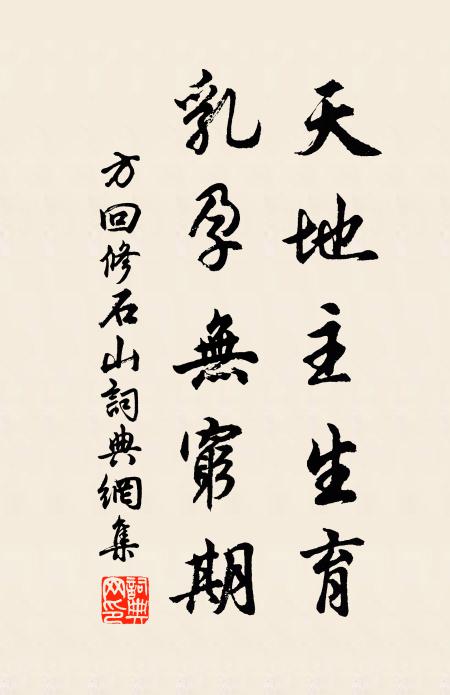 天地主生育
乳孕無窮期
方回修石山詞典網集
詞典網印